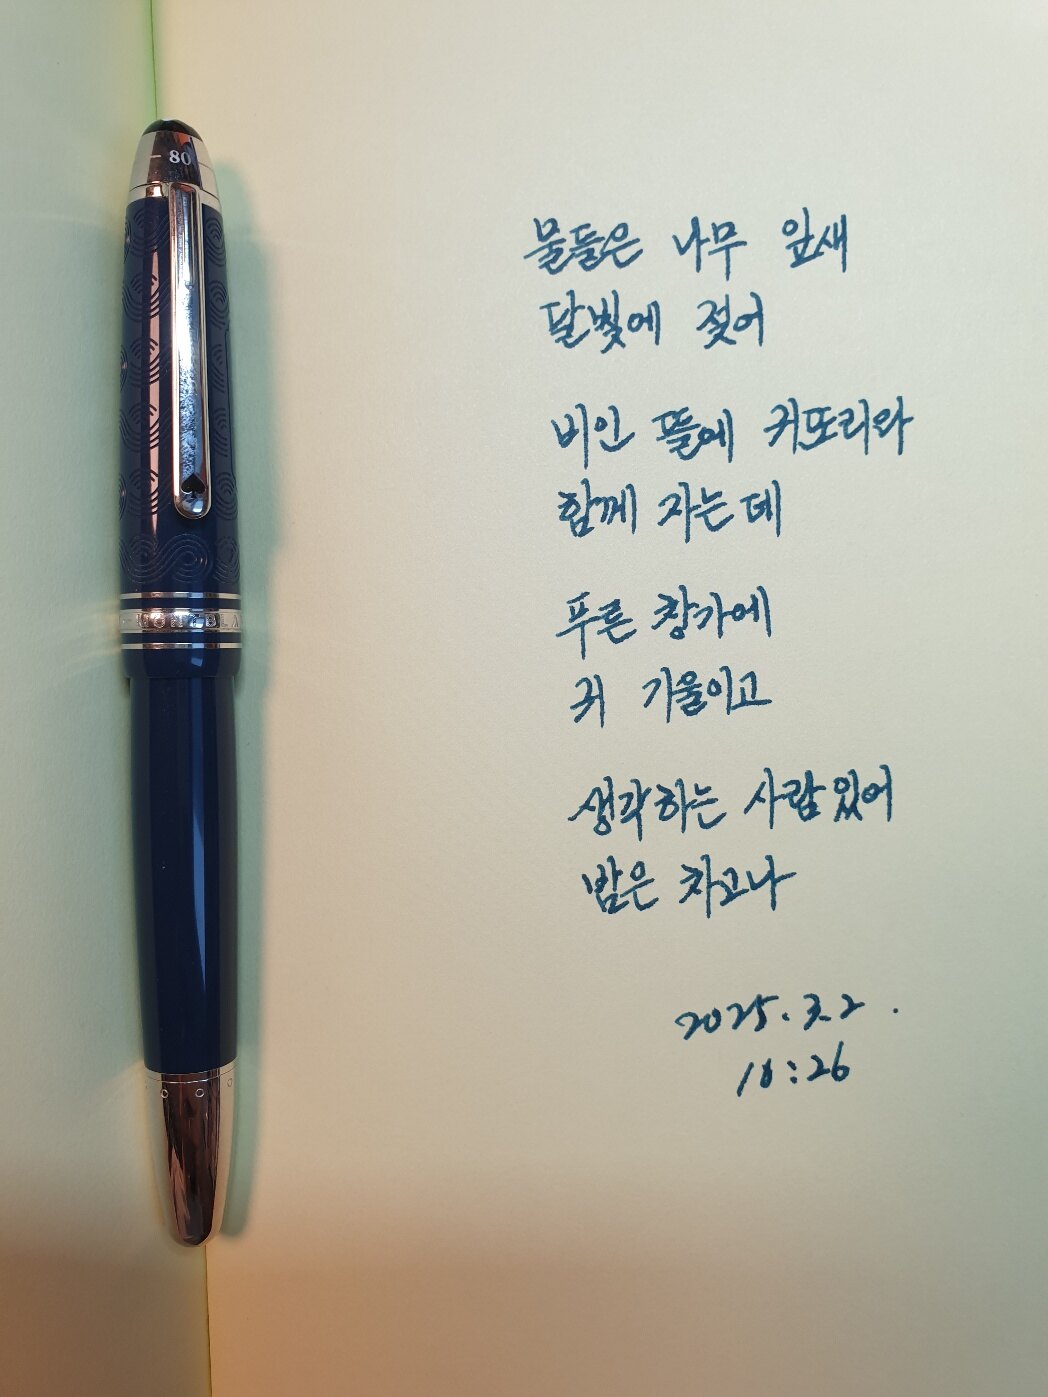 80
MONTBLA
물들은 나무 잎새
달빛에 젖어
비인 뜰에 귀또리와
함께 자는데
푸른 창가에
귀 기울이고
생각하는 사람 있어
밤은 차고나
2025.3.2.
:26